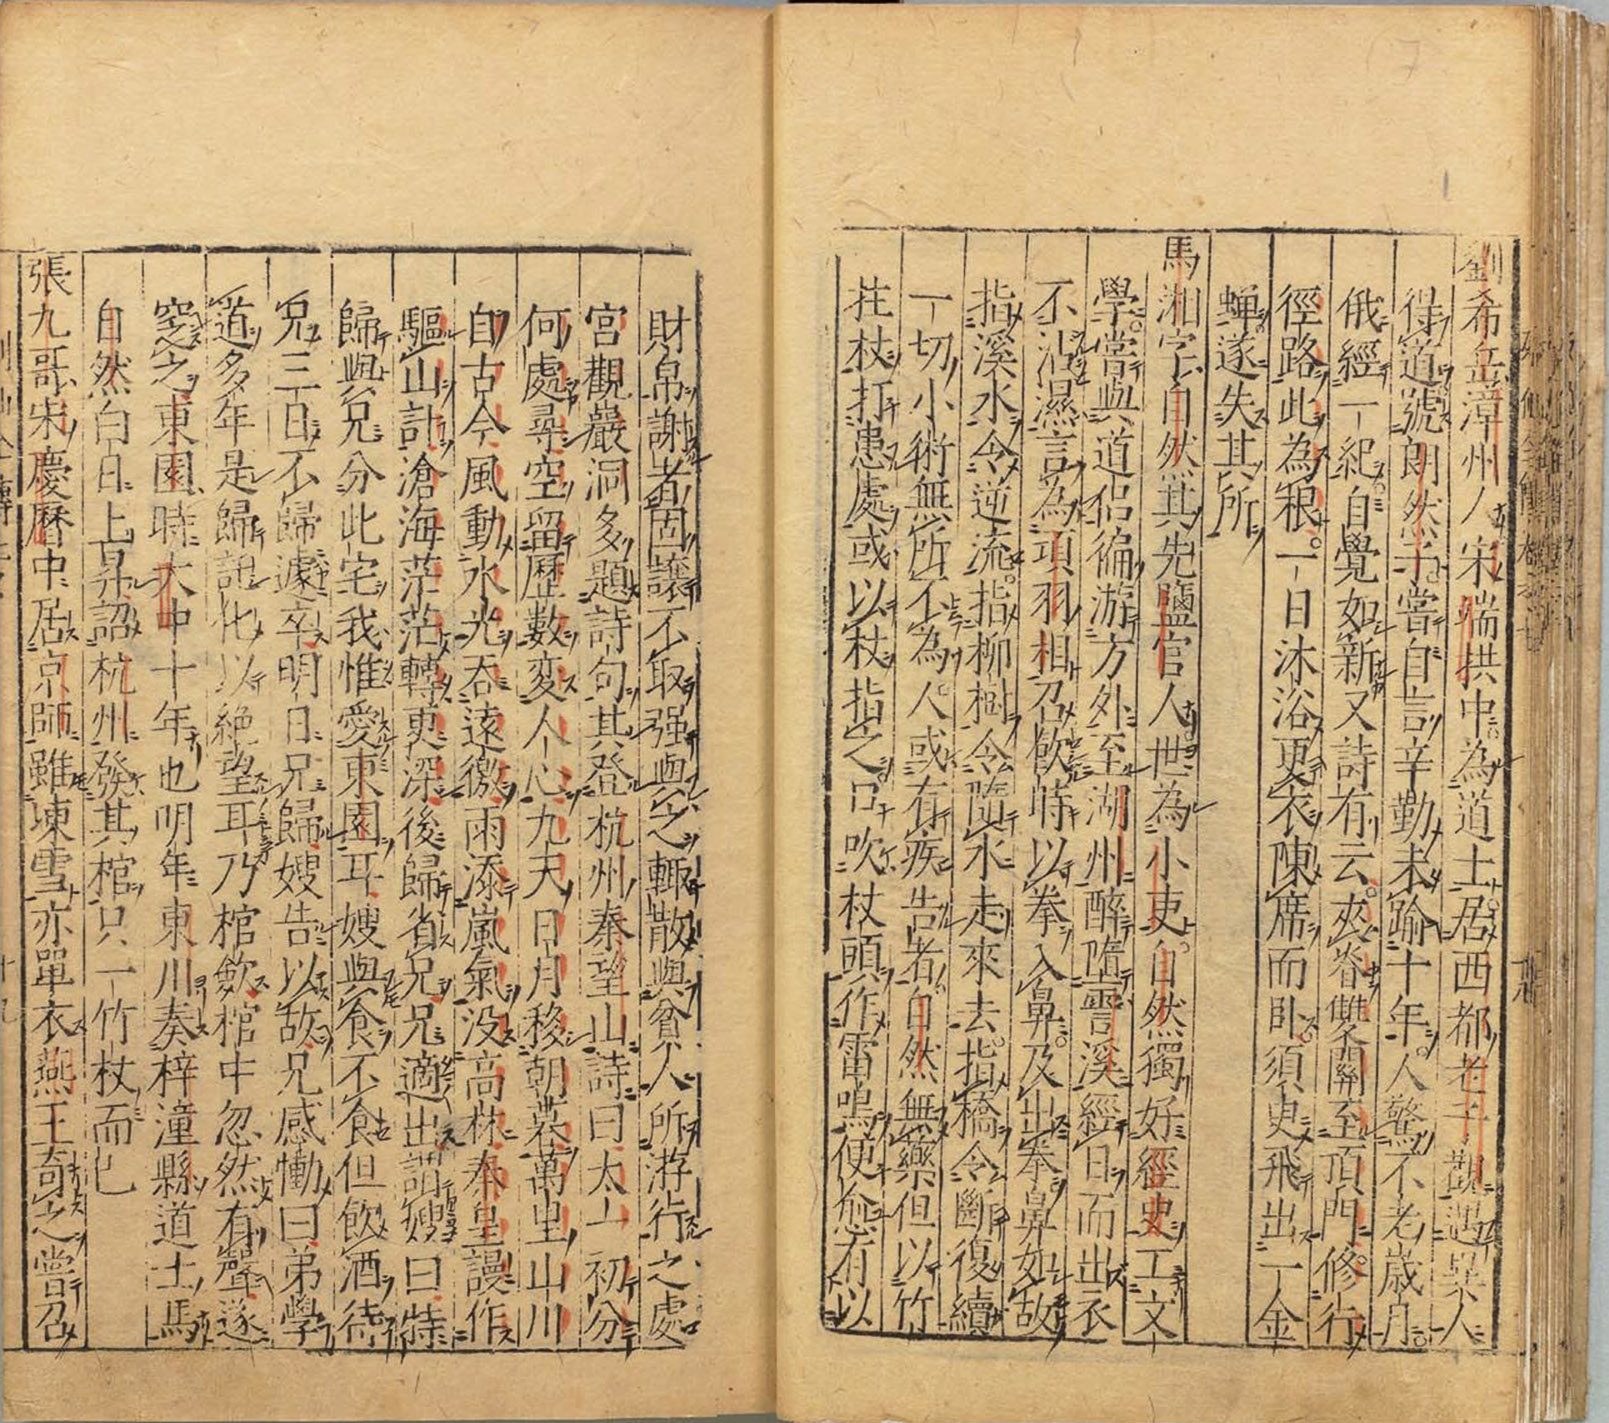 劉希岳漳州人宋端拱中為道士居西都老子觀遇異人
得道號朗然子嘗自言辛勤未踰十年人驚不老歲月
俄經一紀自覺如新又詩有云夾脊雙關至頂門修行
徑路此為根一日沐浴更衣陳席而卧須臾飛出一金
蟬遂失其所
馬湘字自然其先鹽官人世為小吏自然獨好經史工文
學嘗與道侶徧游方外至湖州醉墮霅溪經日而出衣
不沾濕言為項羽相召飲時以拳入鼻及出拳鼻如故
指溪水令逆流指柳樹令隨水走來去指橋令斷復續
一切小術無所不為人或有疾告者自然無藥但以竹
拄杖打患處或以杖指之口吹杖頭作雷鳴便愈有以
財帛謝者固讓不取强與之輙散與貧人所游行之處
宮觀巖洞多題詩句其登杭州秦望山詩曰太一初分
何處尋空留歷數変人心九天日月移朝暮萬里山川
自古今風動水光吞遠徼雨添嵐氣没高林秦皇謾作
驅山計滄海茫茫轉更深後歸省兄兄適出謂嫂曰特
歸與兄分此宅我惟愛東園耳嫂與食不食但飲酒待
兄三日不歸遽卒明日兄歸嫂告以故兄感慟曰弟學
道多年是歸訊化以絶望耳乃棺斂棺中忽然有聲遂
窆之東園時大中十年也明年東川奏梓潼縣道士馬
自然白日上昇詔杭州發其棺只一竹杖而已
張九哥宋慶曆中居京師雖凍雪亦單衣燕王奇之嘗召